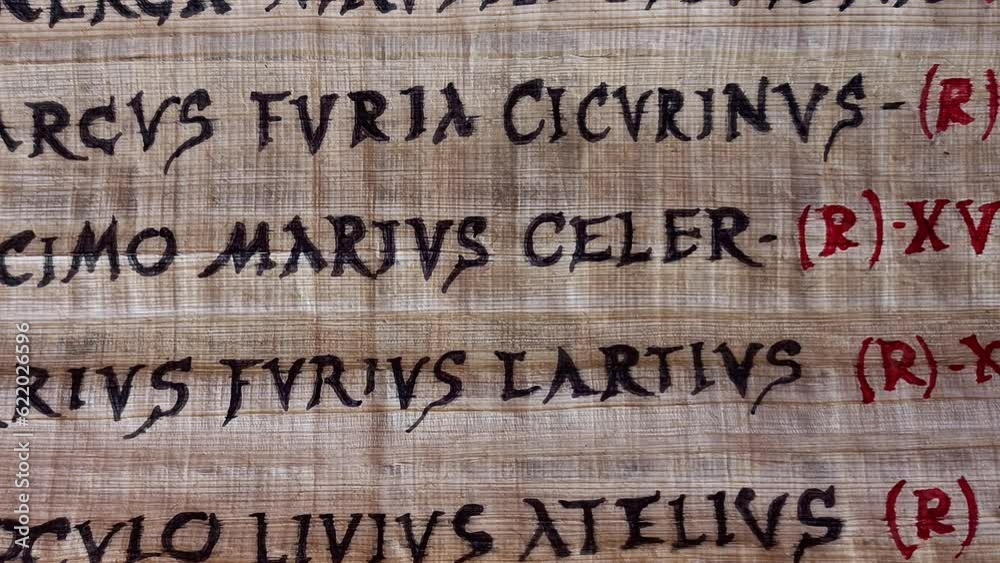 ARCVS FVRIA CICVRINVS - (R)
CIMO MARIVS CELER - (R) - XV
RIVS FVRIVS LARTIVS (R) - X
CVLO LIVIVS ATELIVS (R)
Adobe Stock | #622026596